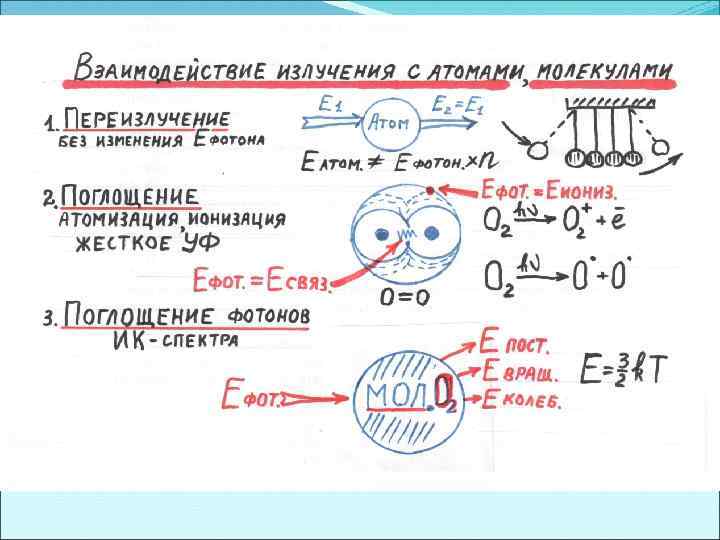 Взаимодействие излучения с атомами, молекулами
1. Переизлучение
без изменения E фотона
E1
Атом
E2=E1
E атом. ≠ E фотон. × n
2. Поглощение
атомизация, ионизация
жесткое УФ
E фот. = E иониз.
O2 hν → O2+ + ē
E фот. = E связ.
O=O
O2 hν → O• + O•
3. Поглощение фотонов
ИК-спектра
E фот.
МОЛ. O2
E пост.
E вращ.
E колеб.
E=3/2 kT